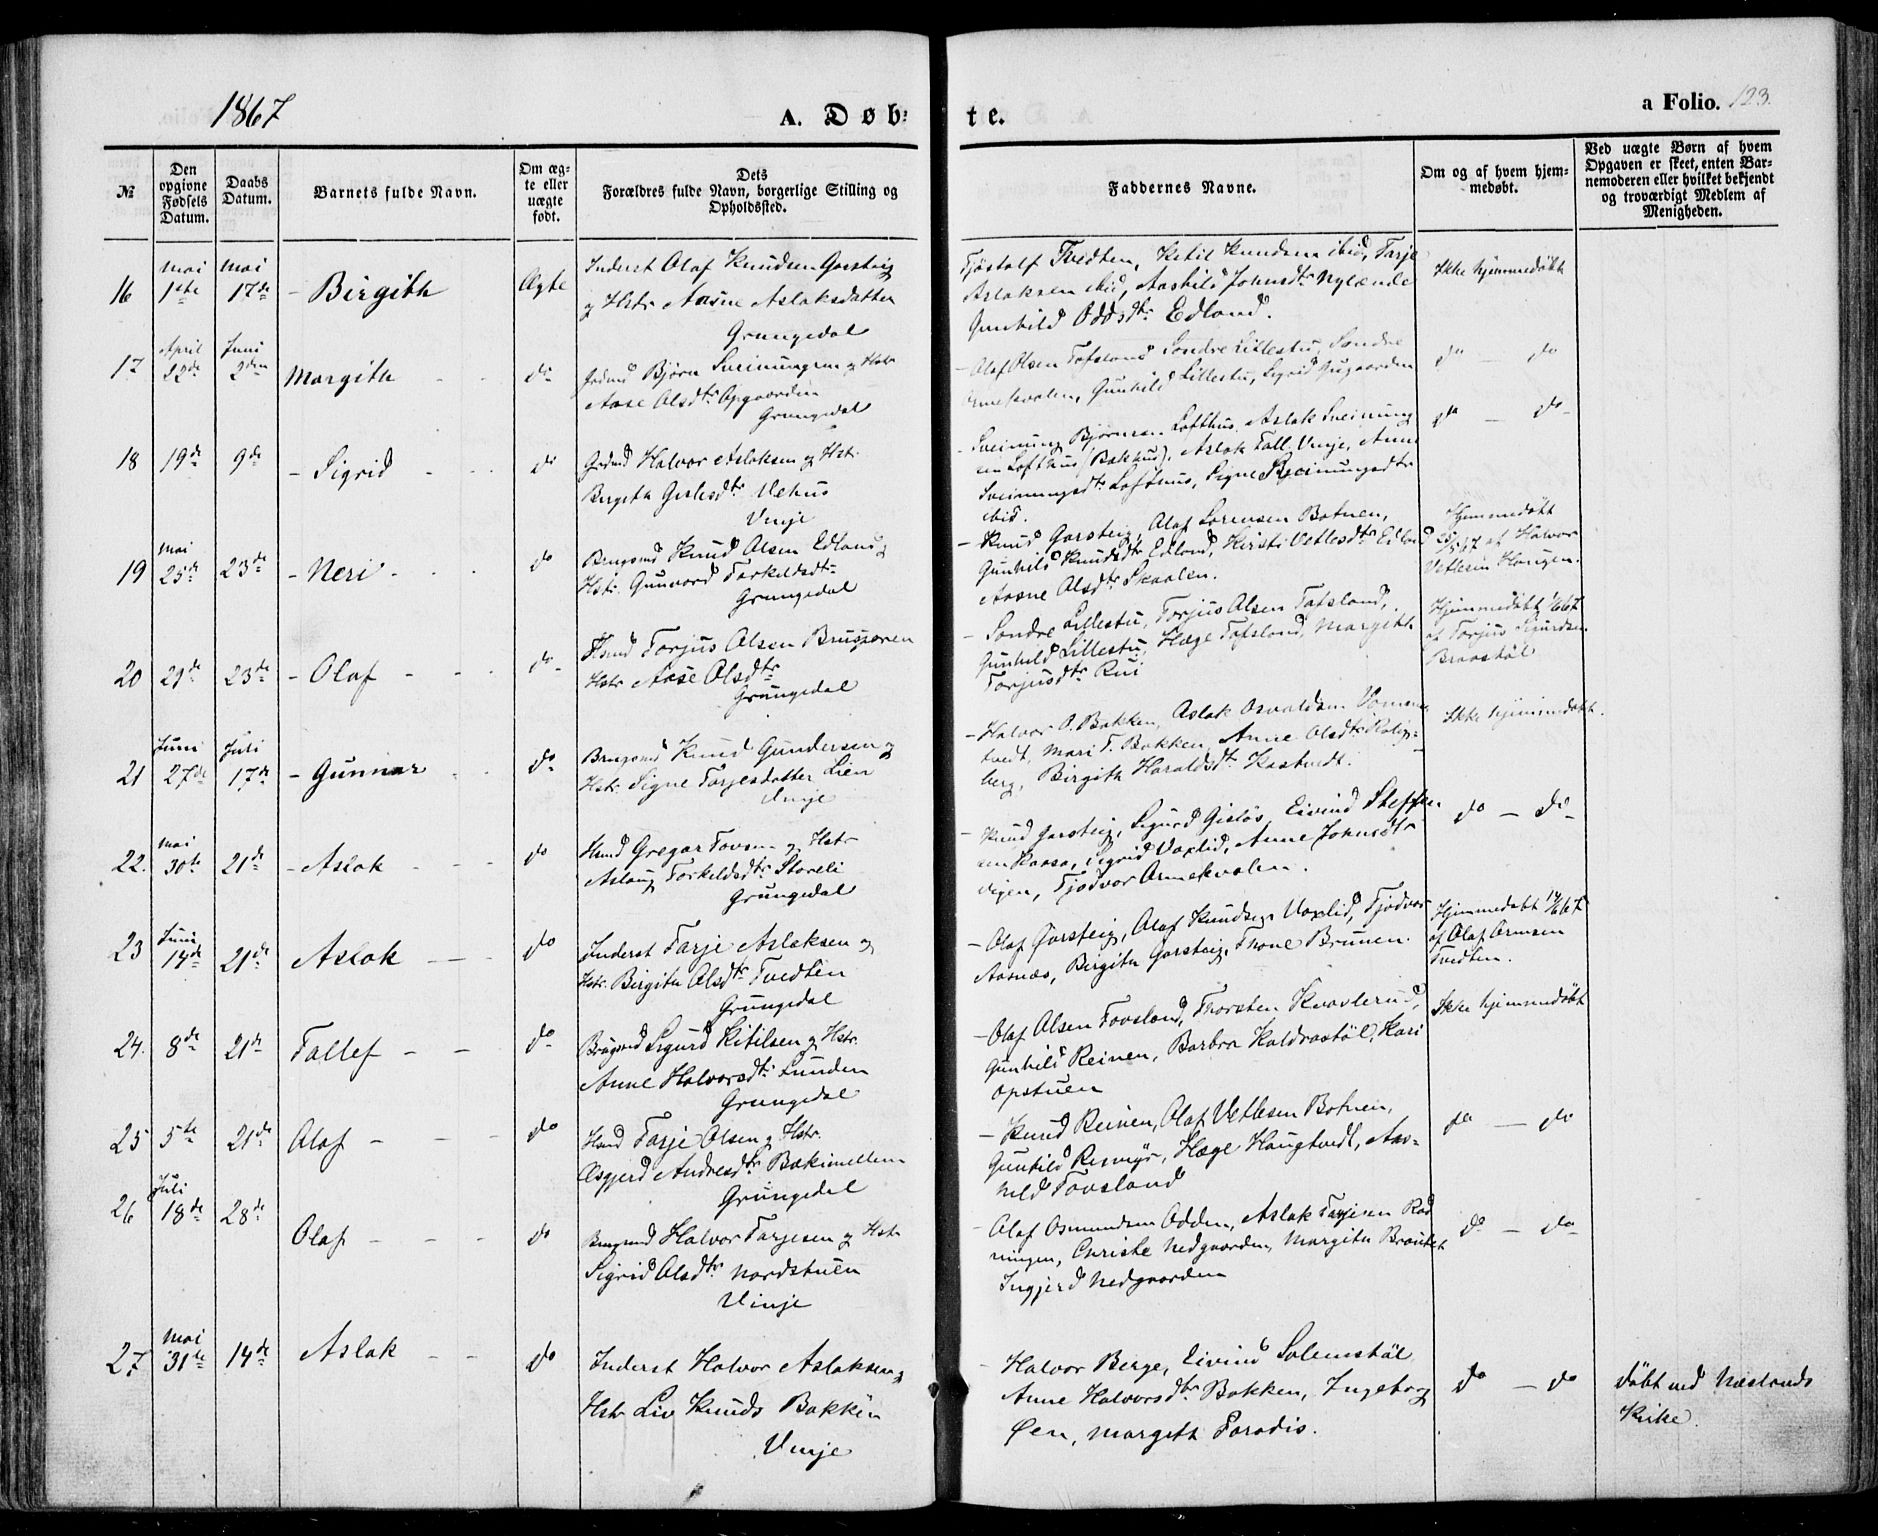 1867
A. Døb=
te.
a Folio. 123.
№
Den opgivne Fødsels Datum.
Daabs Datum.
Barnets fulde Navn.
Om ægte eller uægte født.
Dets Forældres fulde Navn, borgerlige Stilling og Opholdssted.
Faddernes Navne.
Om og af hvem hjemmedøbt.
Ved uægte Børn af hvem Opgaven er skeet, enten Barnemoderen eller hvilket bekjendt og troværdigt Medlem af Menigheden.
16 Mai 1ste Mai 17de - Birgith Ægte
Inderst Olaf Knudsen Garsteig
og Hstr Aasne Aslaksdatter
Grungedal
Tjøstolf Tvedten, Ketil Knudsen ibid, Tarje
Aslaksen ibid, Aashild Johnsdtr Nylænde
Gunhild Oddsdtr Edland.
Ikke hjemmedøbt
17 April 22de Juni 2den Margith - - do
Grdmd Bjørn Sveinungsen og Hstr
Aase Olsdtr Opgaarden
Grungedal
- Olaf Olsen Tofsland Sondre Lillestu, Sondre
Armekvalen, Gunhild Lillestu, Sigrid
do — do
18 19de 9de - Sigrid - - do
Grdmd Halvor Aslaksen og Hstr.
Birgith Gislesdtr Vehus
Vinje
- Sveinung Bjørnsen Lofthus, Aslak Sveinung
sen Lofthus (Bakhus), Aslak Tall. Vinje, Anne
Sveinungsdtr Lofthus, Signe Sveinungsdtr
ibid.
do — do
19 Mai 25de 23de - Neri - - do
Brugsmd Knud Olsen Edland og
Hstr. Gunvord Torkildsdtr
Grungedal
- Knud Garsteig, Olaf Sørensen Botnen,
Gunhild Knudsdtr Edland, Kirsti Vetlesdtr Edland
Aasne Olsdtr Skaalen.
Hjemmedøbt
25/5 67 af Halvor
Vetlesen Haugen.
20 29de 23de - Olaf - - do
Hsmd Torjus Olsen Brusjaren
Hstr Aase Olsdtr
Grungedal
- Sondre Lillestu, Torjus Olsen Tofsland,
Gunhild Lillestu, Hæge Tofsland, Margith
Torjusdtr Rui
Hjemmedøbt 1/6 67
af Torjus Sjurdsen
Braastøl
21 Juni 27de Juli 17de - Gunnar - - do
Brugsmd Knud Gundersen og
Hstr. Signe Tarjesdatter Lien
Vinje
- Halvor O. Bakken, Aslak Osvaldsen
tvedt, Mari T. Bakken, Anne Olsdtr
berg, Birgith Haraldsdtr Kastvedt.
Ikke hjemmedøbt.
22. Mai 30te 21de - Aslak - - do
Hsmd Gregar Tovsen og Hstr
Aslaug Torkildsdtr Storeli
Grungedal
- Knud Garsteig, Sigurd Gisløs, Eivind Steffen
sen Kaasa, Sigrid Vaxlid, Anne Johnsdtr
vigen, Tjodvor Armekvalen.
do — do
23 Juni 14de 21de Aslak — - do
Inderst Tarje Aslaksen og
Hstr. Birgith Olsdtr Tvedten
Grungedal
- Olaf Garsteig, Olaf Knudsen Vaxlid, Tjodvor
Aasnæs, Birgith Garsteig, Thone Brunen.
Hjemmedøbt 14/6 67
af Olaf Ormsen
Tvedten.
24. 8de 21de Tallef - - do
Brugsmd Sigurd Kitilsen og Hstr.
Anne Halvorsdtr Lunden
Grungedal
- Olaf Olsen Tovsland, Thorsten Kvavlerud,
Gunhild Reinen, Barbra Kaldraastøl, Kari
Opstuen
Ikke hjemmedøbt
25 5te 21de Olaf - - do
Hsmd Tarje Olsen og Hstr.
Asgjerd Andresdtr Bakimellem
Grungedal
- Knud Reinen, Olaf Vetlesen Botnen,
Gunhild Rismyr, Hæge Haugtvedt, Aas=
hild Tovsland
do — do
26 Juli 18de 28de Olaf - - - do
Brugsmd Halvor Tarjesen og Hstr
Sigrid Olsdtr Nordstuen
Vinje
- Olaf Osmundsen Odden, Aslak Tarjesen Rod
ningen, Christe Nedgaarden, Margith
Ingjerd Nedgaarden
do — do
27 Mai 31te 14de Aslak - - do
Inderst Halvor Aslaksen og
Hstr Liv Knuds Bakken
Vinje
- Halvor Berge, Eivind Solemstøl
Anne Halvorsdtr Bakken, Ingeborg
Øen, Margith Paradis.
do — do
døbt ved Næslands
Kirke.